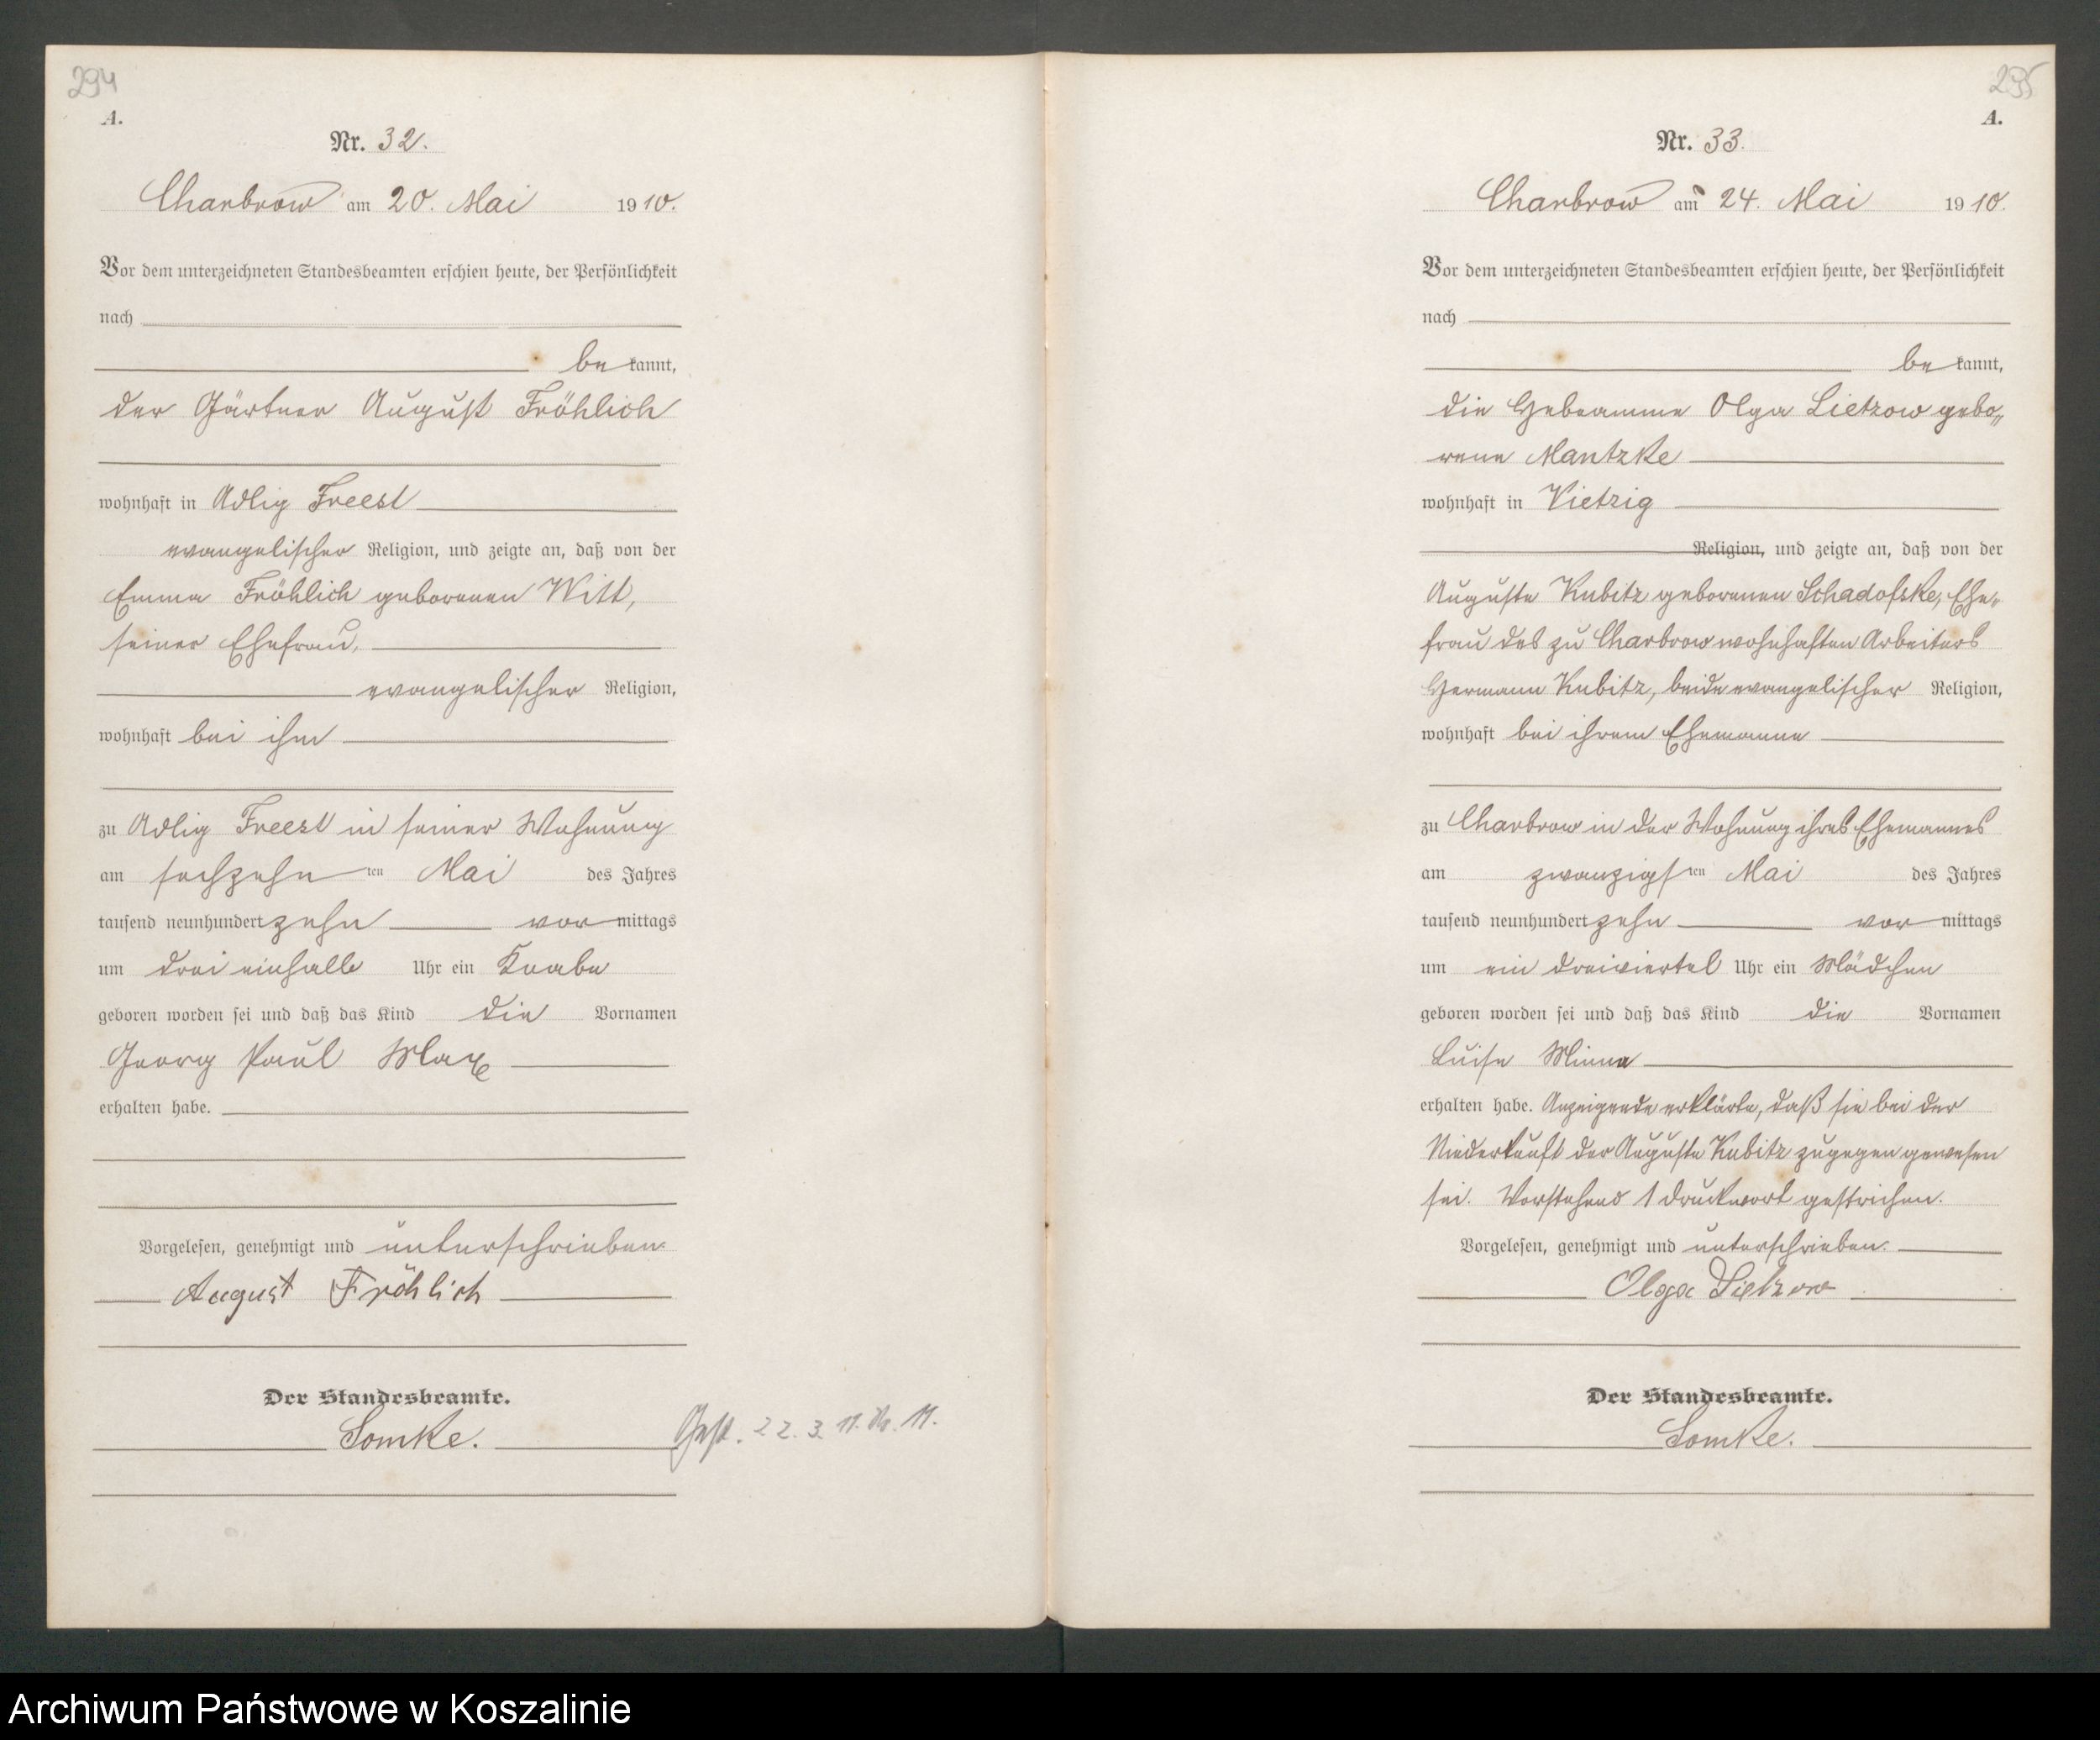 294
A.
Nr. 32.
Charbrow am 20. Mai 1910.
Vor dem unterzeichneten Standesbeamten erschien heute, der Persönlichkeit
nach
bekannt,
der Gärtner August Fröhlich
wohnhaft in Adlig Freest
evangelischer Religion, und zeigte an, daß von der
Emma Fröhlich geborenen Witt,
seiner Ehefrau,
evangelischer Religion,
wohnhaft bei ihm
zu Adlig Freest in seiner Wohnung
am sechzehnten Mai des Jahres
tausend neunhundert zehn vormittags
um drei einhalb Uhr ein Knabe
geboren worden sei und daß das Kind die Vornamen
Georg Paul Max
erhalten habe.
Vorgelesen, genehmigt und unterschrieben.
August Fröhlich
Der Standesbeamte.
Somke.
Gest. 22. 3. 11. 11.
235
A.
Nr. 33.
Charbrow am 24. Mai 1910.
Vor dem unterzeichneten Standesbeamten erschien heute, der Persönlichkeit
nach
bekannt,
die Hebeamme Olga Lietzow gebo„
rene Mantzke
wohnhaft in Vietzig
Religion, und zeigte an, daß von der
Auguste Kubitz geborenen Schadofske, Ehe„
frau des zu Charbrow wohnhaften Arbeiters
Hermann Kubitz, beide evangelischer Religion,
wohnhaft bei ihrem Ehemanne
zu Charbrow in der Wohnung ihres Ehemannes
am zwanzigsten Mai des Jahres
tausend neunhundert zehn vormittags
um ein dreiviertel Uhr ein Mädchen
geboren worden sei und daß das Kind die Vornamen
Luise Minna
erhalten habe. Anzeigende erklärte, daß sie bei der
Niederkunft der Auguste Kubitz zugegen gewesen
sei. Vorstehend 1 Druckwort gestrichen.
Vorgelesen, genehmigt und unterschrieben.
Olga Lietzow
Der Standesbeamte.
Somke.
Archiwum Państwowe w Koszalinie